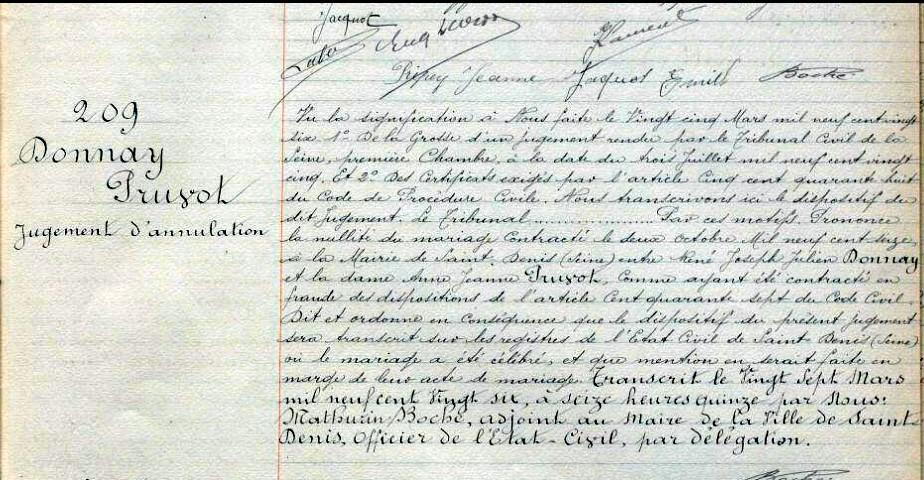 Jacquot
Laurent
Pripey Jeanne Jacquot Emile Boché
209
Donnay
Pruvot
Jugement d'annulation
Vu la signification à Nous faite le Vingt cinq Mars mil neuf cent vingt
six 1º De la Grosse d'un jugement rendu par le Tribunal Civil de la
Seine, première Chambre, à la date du trois Juillet mil neuf cent vingt
cinq, Et 2º Des Certificats exigés par l'article Cinq cent quarante huit
du Code de Procédure Civile. Nous transcrivons ici le dispositif du
dit Jugement. Le Tribunal .................... Par ces motifs. Prononce
la nullité du mariage Contracté le deux octobre Mil neuf cent seize
à la Mairie de Saint-Denis (Seine) entre René Joseph Julien Donnay
et la dame Anne Jeanne Pruvot, Comme ayant été contracté en
fraude des dispositions de l'article Cent quarante sept du Code Civil.
Dit et ordonne en Conséquence que le dispositif du présent Jugement
sera transcrit sur les registres de l'Etat Civil de Saint-Denis (Seine)
où le mariage a été célébré, et que mention en serait faite en
marge de leur acte de mariage. Transcrit le Vingt Sept Mars
mil neuf cent Vingt six, à seize heures quinze par Nous:
Mathurin Boché, adjoint au Maire de la Ville de Saint-
Denis, Officier de l'Etat-Civil, par délégation.